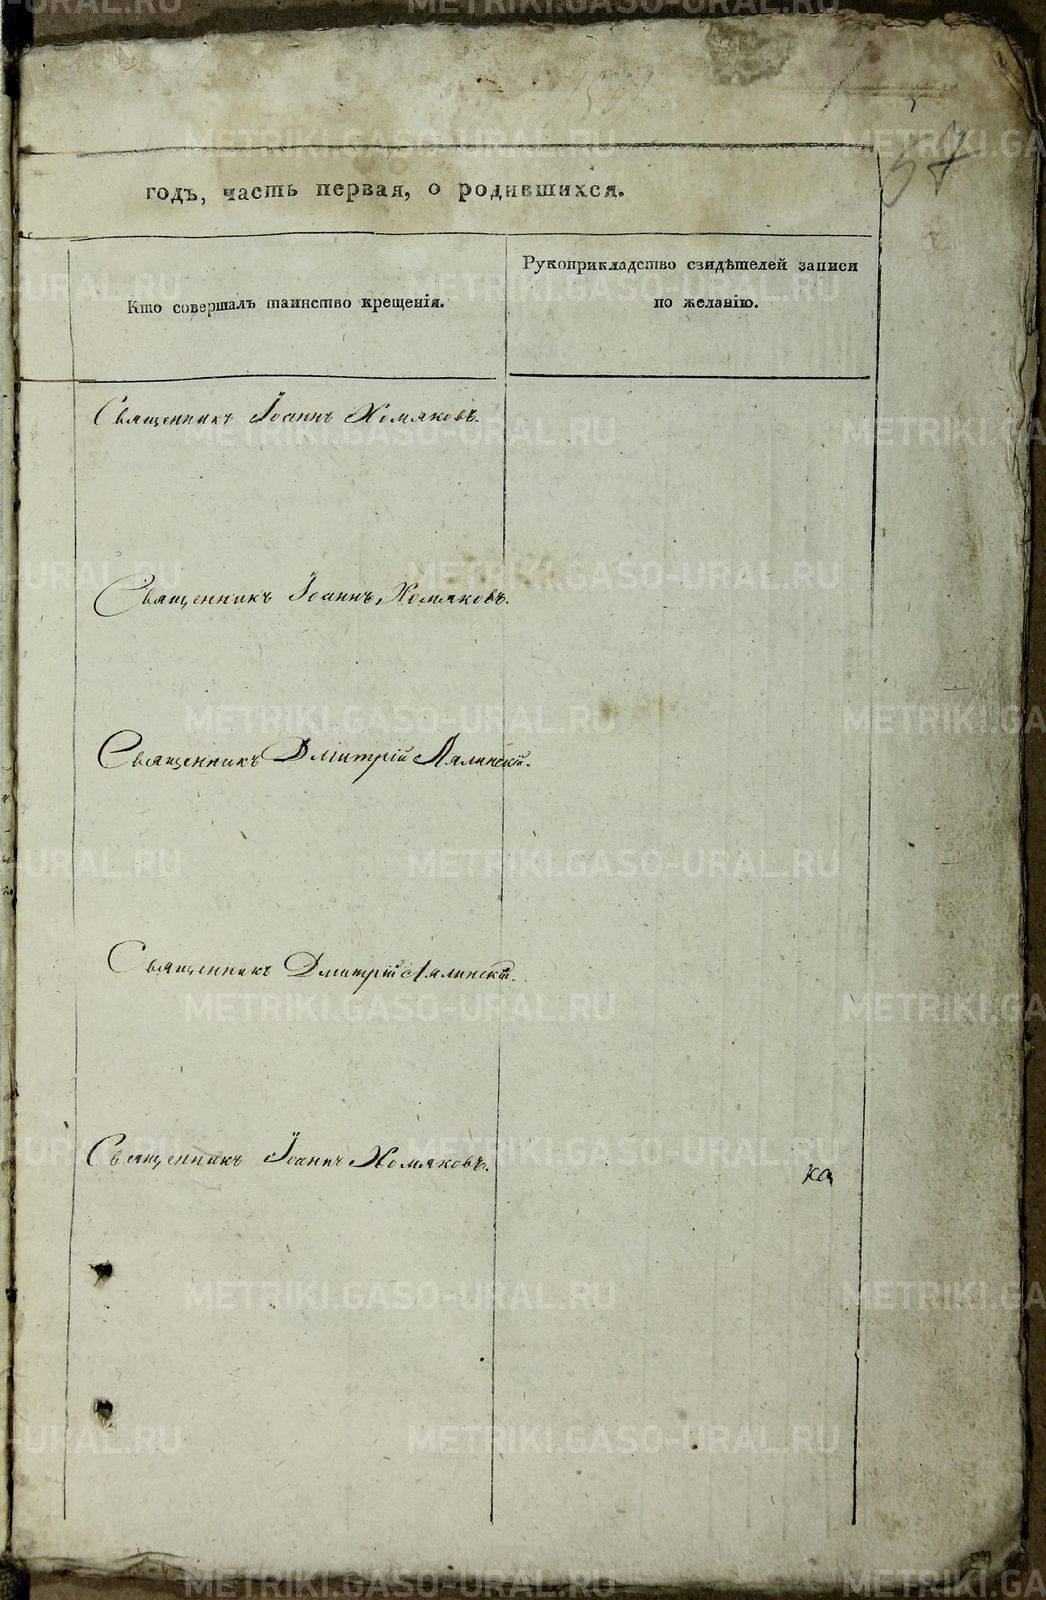 57
годъ, часть первая, о родившихся.
Кто совершалъ таинство крещенія.
Рукоприкладство свидѣтелей записи
по желанію.
Священникъ Іоаннъ Хомяковъ.
Священникъ Іоаннъ Хомяковъ.
Священникъ Дмитрій Лялинскій.
Священникъ Дмитрій Лялинскій.
Священникъ Іоаннъ Хомяковъ.
ка
METRIKI.GASO-URAL.RU